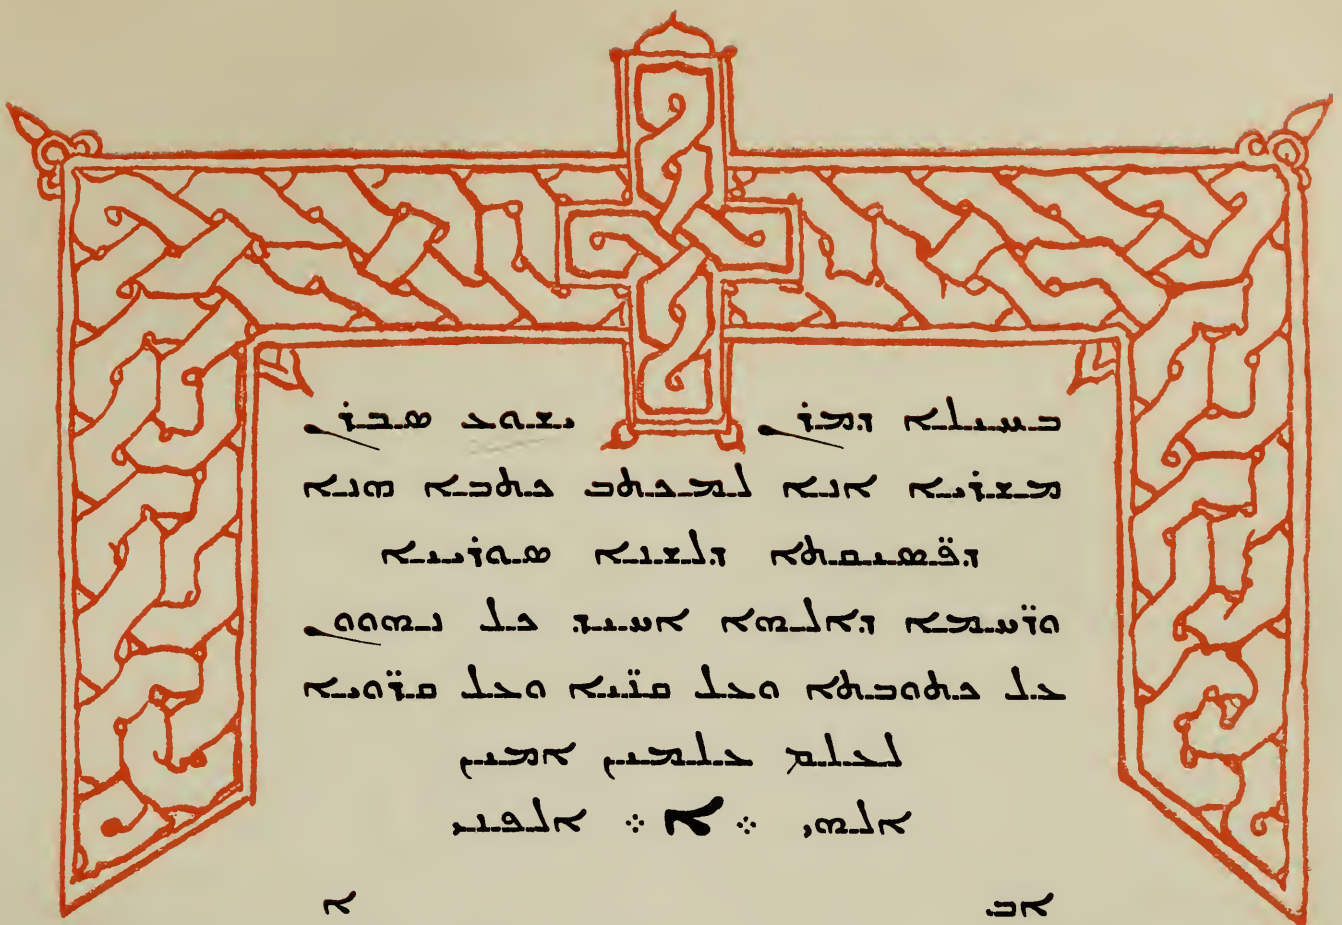 ܒܚܝܠܐ ܕܡܪܢ ܝܫܘܥ ܣܒܪܢ
ܡܫܪܝܐ ܐܢܐ ܠܡܟܬܒ ܟܬܒܐ ܗܢܐ
ܕܦ̈ܣܝܩܬܐ ܕܠܫܢܐ ܣܘܪܝܝܐ
ܘܪ̈ܚܡܐ ܕܐܠܗܐ ܐܚܝܕ ܟܠ ܢܗܘܘܢ
ܥܠ ܟܬܘܒܬܐ ܘܥܠ ܩܪ̈ܝܐ ܘܥܠ ܩܪ̈ܘܝܐ
ܠܥܠܡ ܥܠܡܝܢ ܐܡܝܢ
ܐܠܗܝ ܀ ܐ ܀ ܐܠܦܢܝ
ܐܒ. ܐ